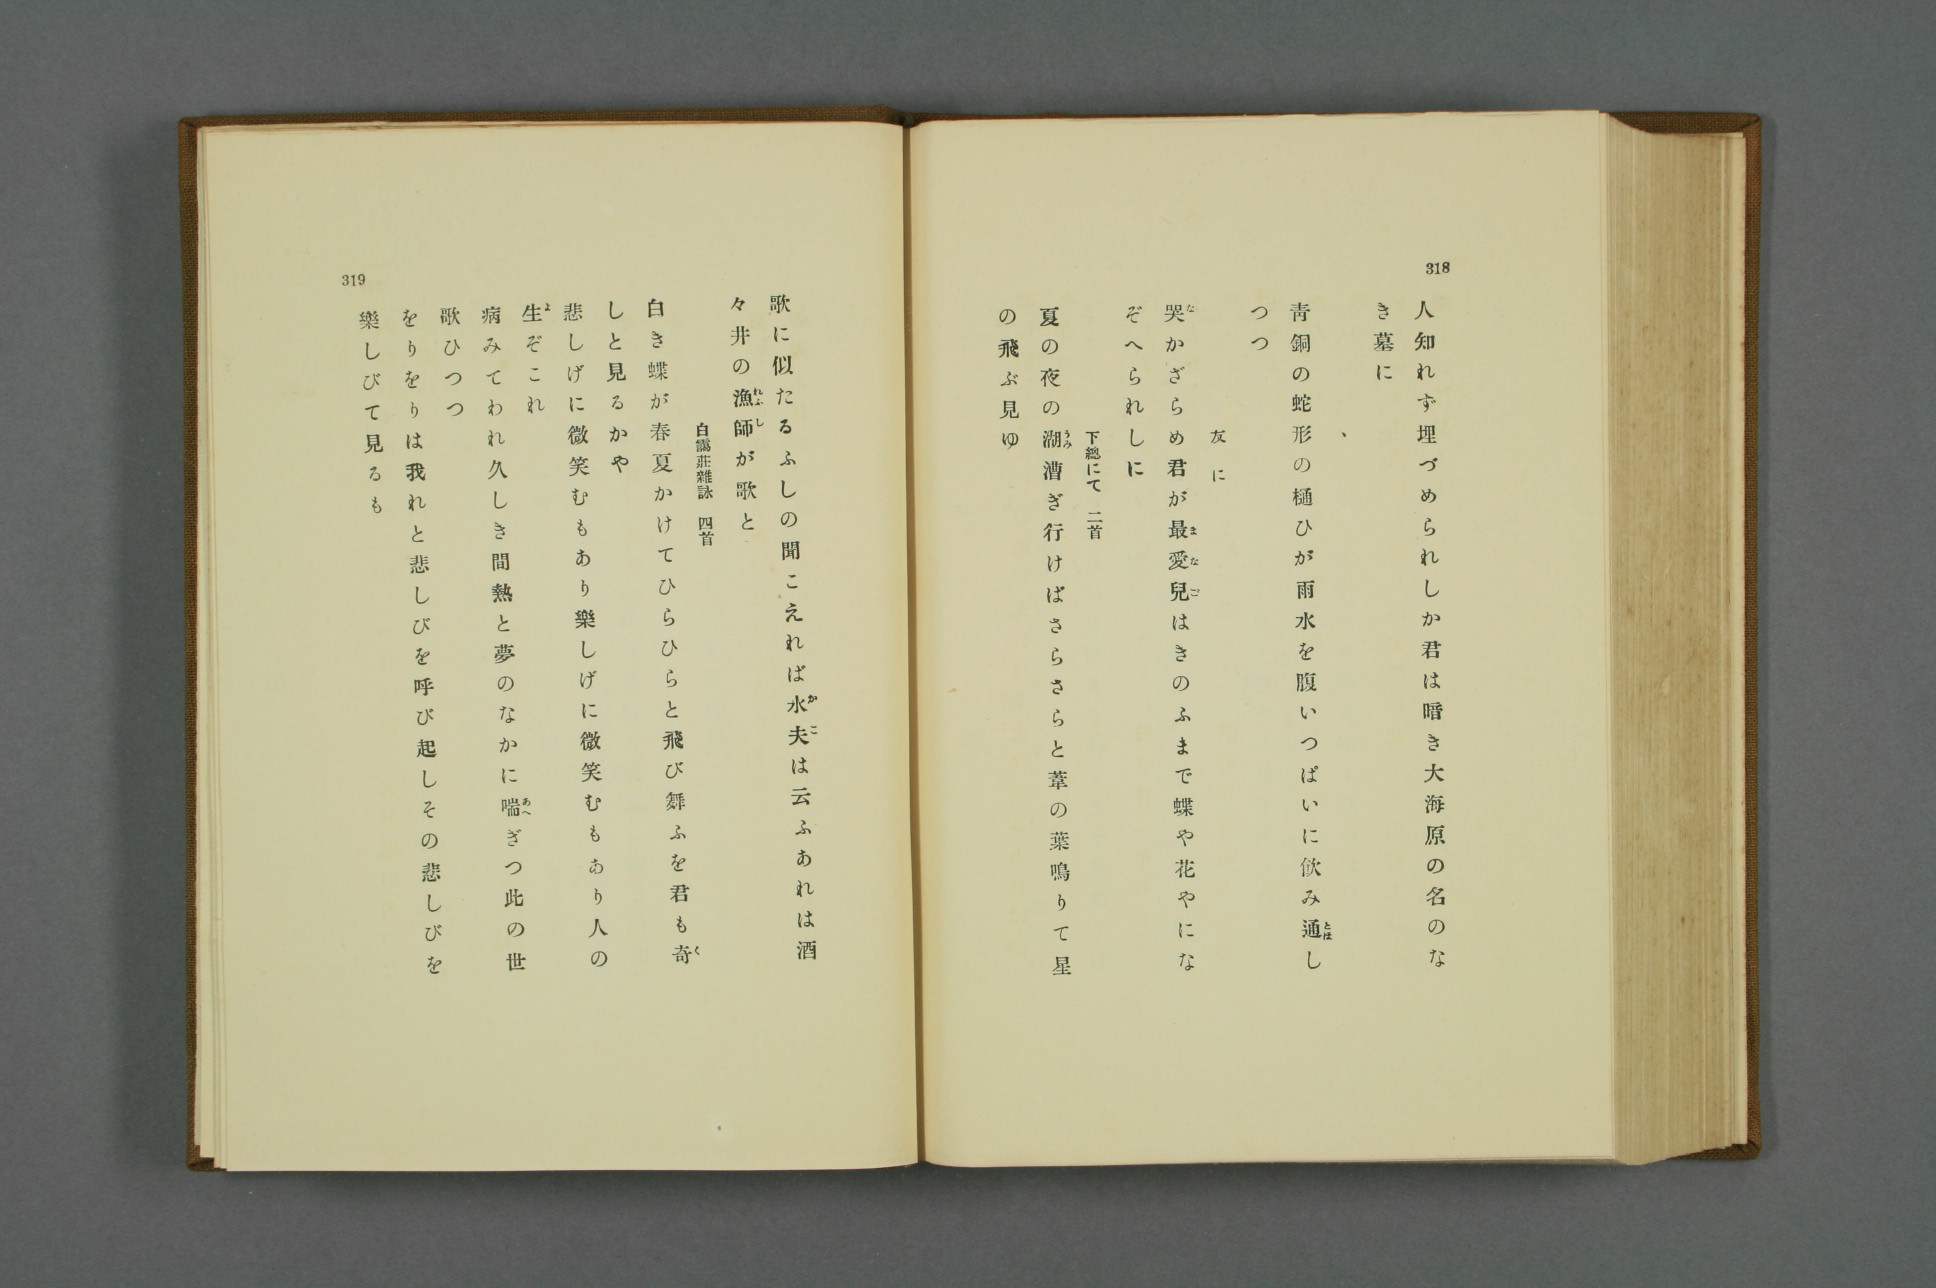 318
人知れず埋づめられしか君は暗き大海原の名のな
き墓に
、
靑銅の蛇形の樋ひが雨水を腹いつぱいに飮み通とほし
つつ
友に
哭なかざらめ君が最愛兒まなごはきのふまで蝶や花やにな
ぞへられしに
下總にて 二首
夏の夜の湖うみ漕ぎ行けばさらさらと葦の葉鳴りて星
の飛ぶ見ゆ
歌に似たるふしの聞こえれば水夫かこは云ふあれは酒
々井の漁師れふしが歌と
白靄莊雜詠 四首
白き蝶が春夏かけてひらひらと飛び舞ふを君も奇く
しと見るかや
悲しげに微笑むもあり樂しげに微笑むもあり人の
生よぞこれ
病みてわれ久しき間熱と夢のなかに喘あへぎつ此の世
歌ひつつ
をりをりは我れと悲しびを呼び起しその悲しびを
樂しびて見るも
319